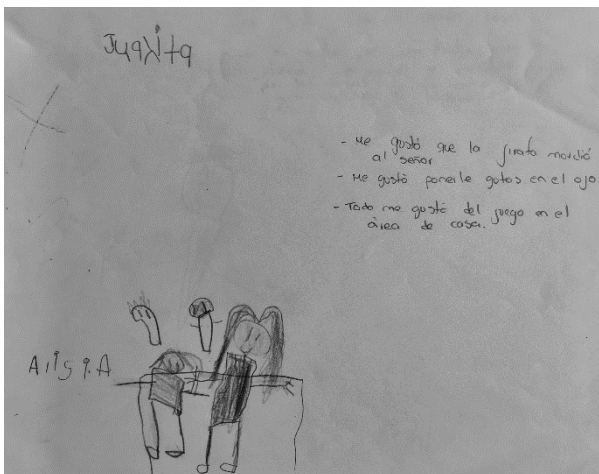 Juakita
- Me gustó que la jirafa mordió
al señor
- Me gustó ponerle gotas en el ojo
- Todo me gustó del juego en el
área de casa.
AliSiA